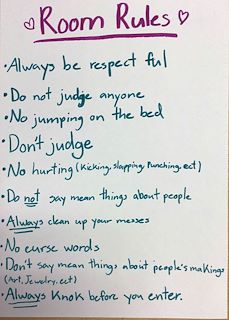 Room Rules
• Always be respect ful
• Do not judge anyone
• No jumping on the bed
• Don't judge
• No hurting (Kicking, slapping, Punching, ect)
• Do not say mean things about people
• Always clean up your messes
• No curse words
• Don't say mean things about people's makings
(Art, Jewelry, ect)
• Always Knok before you enter.